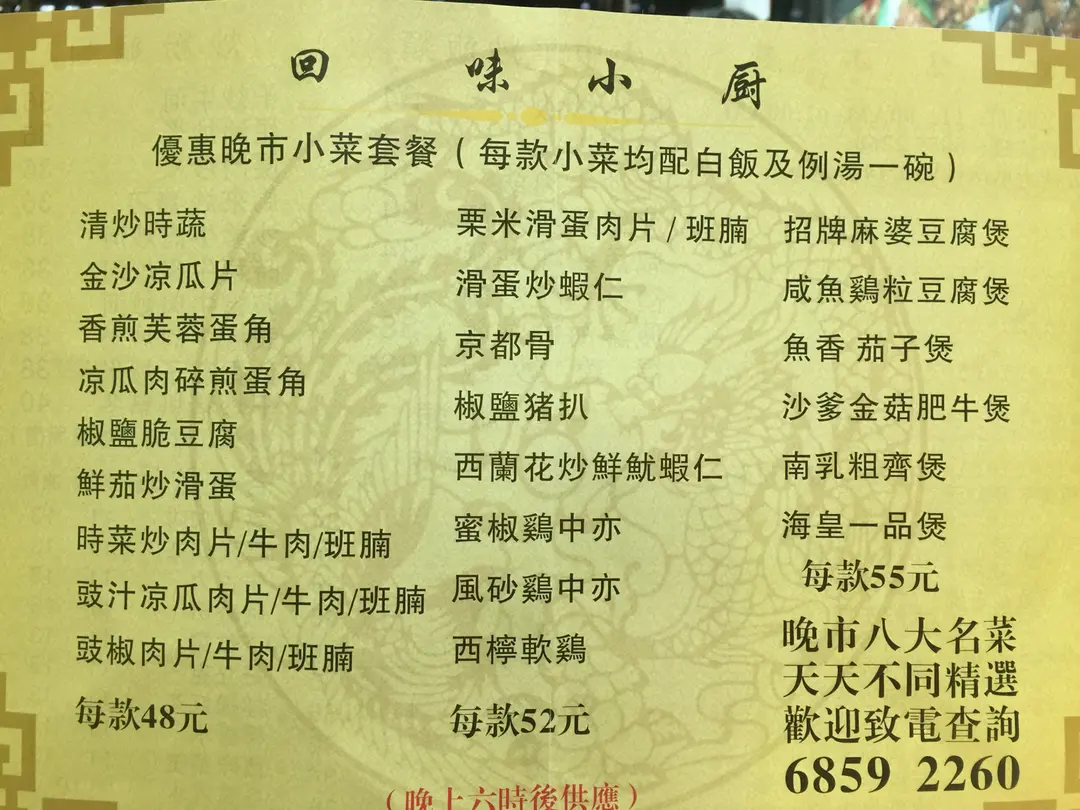 回味小厨
優惠晚市小菜套餐（每款小菜均配白飯及例湯一碗）
清炒時蔬
金沙凉瓜片
香煎芙蓉蛋角
凉瓜肉碎煎蛋角
椒鹽脆豆腐
鮮茄炒滑蛋
時菜炒肉片/牛肉/班腩
豉汁凉瓜肉片/牛肉/班腩
豉椒肉片/牛肉/班腩
每款48元
栗米滑蛋肉片/班腩
滑蛋炒蝦仁
京都骨
椒鹽猪扒
西蘭花炒鮮魷蝦仁
蜜椒鷄中亦
風砂鷄中亦
西檸軟鷄
每款52元
招牌麻婆豆腐煲
咸魚鷄粒豆腐煲
魚香 茄子煲
沙爹金菇肥牛煲
南乳粗齊煲
海皇一品煲
每款55元
晚市八大名菜
天天不同精選
歡迎致電查詢
6859 2260
（晚上六時後供應）